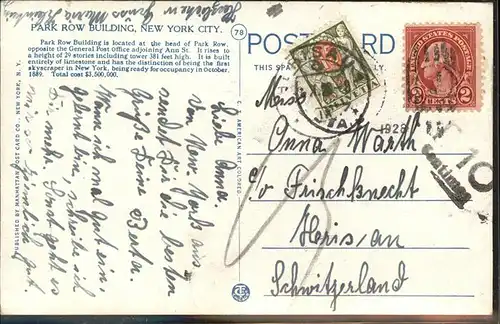 Herzlichen Gruss Maria
PARK ROW BUILDING, NEW YORK CITY.
Park Row Building is located at the head of Park Row,
opposite the General Post Office adjoining Ann St. It rises to
a height of 29 stories including tower 381 feet high. It is built
entirely of limestone and has the distinction of being the first
skyscraper in New York, being ready for occupancy in October.
1889. Total cost $3,500,000.
78
POSTCARD
THIS SPAC
PUBLISHED BY MANHATTAN POST CARD CO., NEW YORK, N. Y.
C. T. AMERICAN ART COLORED
Liebe Anna.
Von New-York aus
sendet Dir die besten
Grüsse Deine Berta.
Wenn ich mal gut ein-
gewöhnt bin, schreibe ich
Dir mehr. Sonst geht es
mir so ziemlich gut.
UNITED STATES POSTAGE
2 CENTS 2
1928
10
Centimes
Miss
Anna Warth
c/o Frischknecht
Heris/an
Schwitzerland